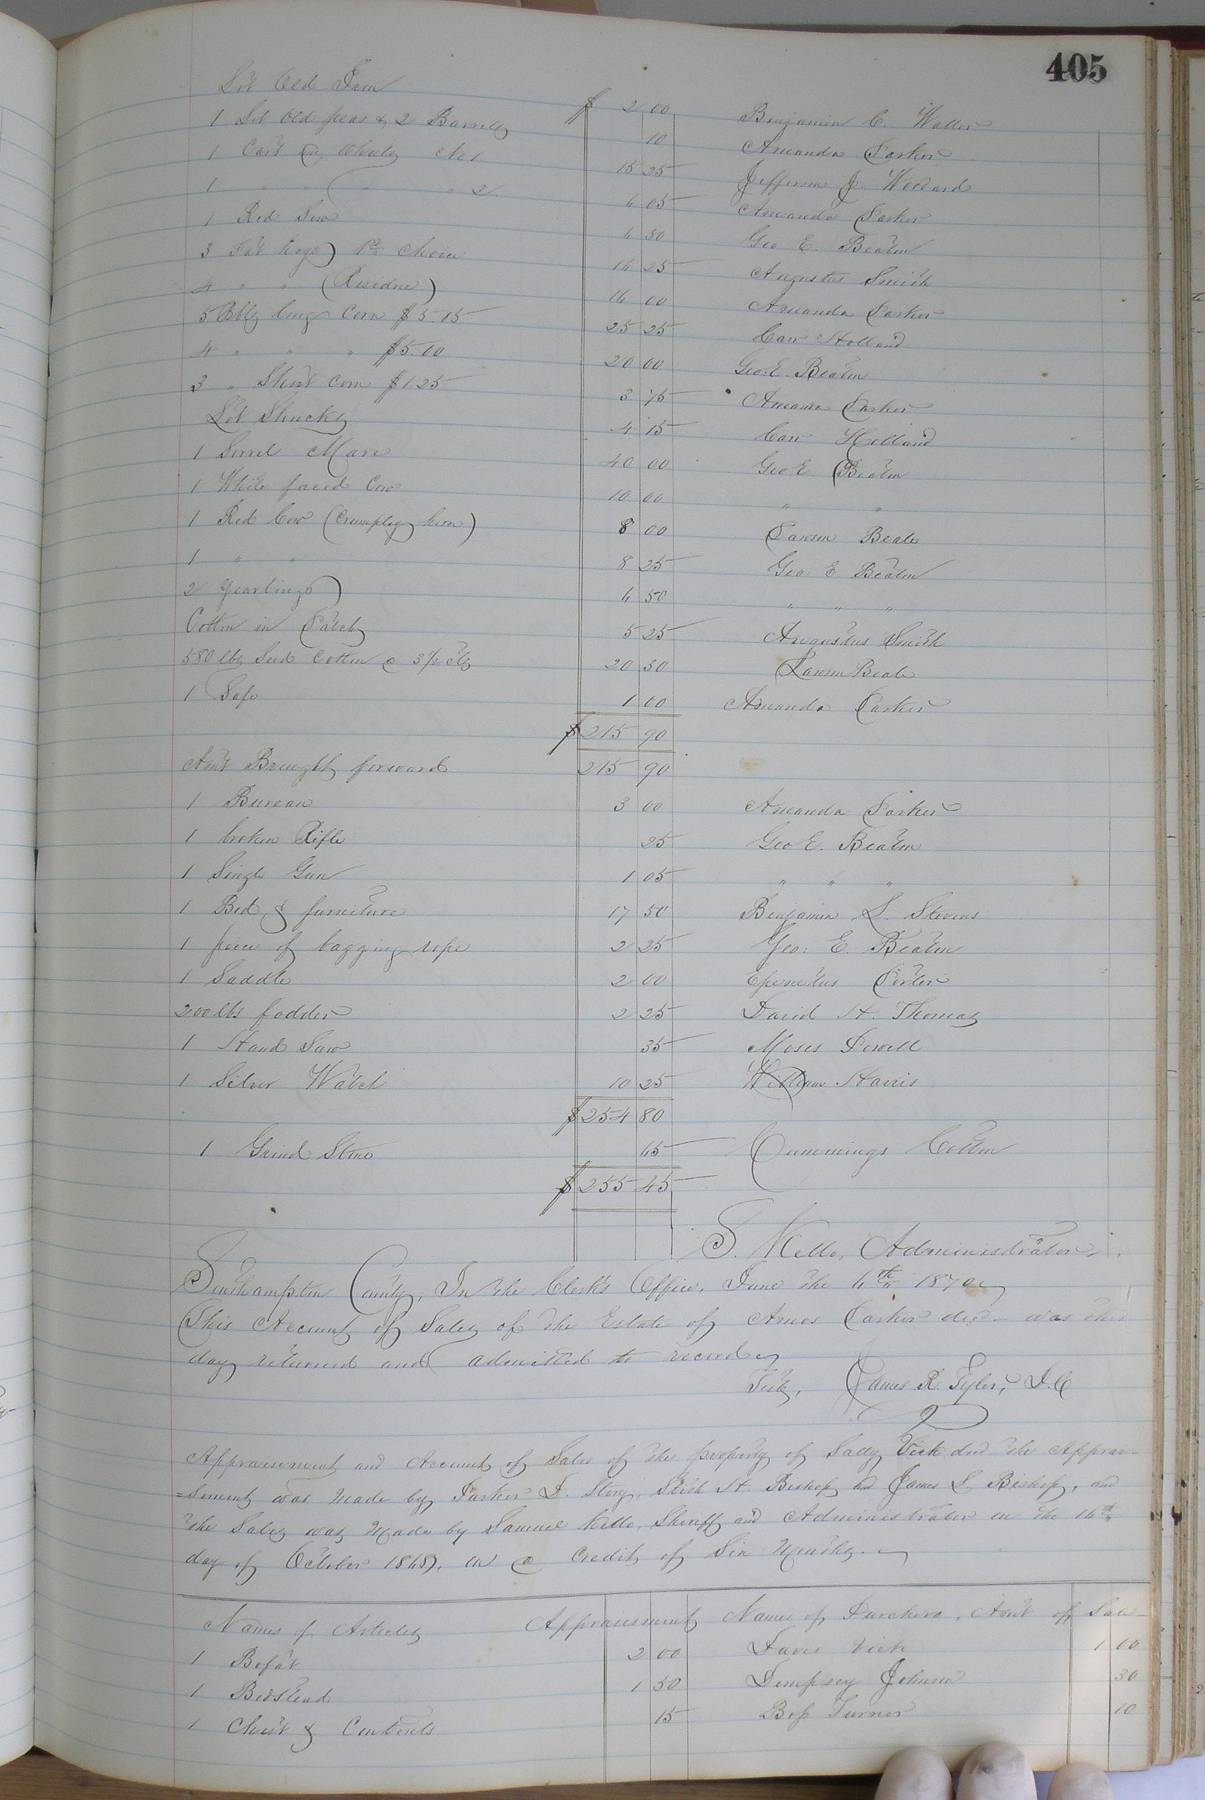 405
Lot Old Iron $ 2 00 Benjamin C. Waller
1 Lot Old peas & 2 Barrels 10 Amanda Parker
1 Cart on Wheels No 1 15 25 Jefferson J. Woodard
1 " " " " 2 6 05 Amanda Parker
1 Red Sow 6 50 Geo E. Beaton
3 Fat hogs 1st choice 16 25 Augustus Smith
4 " " (Residue) 16 00 Amanda Parker
5 Bbls long Corn $5 15 25 25 Holland
4 " " " $5.00 20 00 Geo. E. Beaton
3 " Short corn $1 25 3 75 Amanda Parker
Lot Shucks 4 15 Holland
1 Sorrel Mare 40 00 Geo E. Beaton
1 White faced Cow 10 00 " "
1 Red Cow (Crumpley horn) 8 00 Lawson Beale
1 " " 8 25 Geo E Beaton
2 Yearlings 6 50 " " "
Cotton in Patch 5 25 Augustus Smith
580 lbs Seed Cotton @ 3½ cts 20 30 Lawson Beale
1 Safe 1 00 Amanda Parker
$215 90
Am't Brought forward 215 90
1 Bureau 3 00 Amanda Parker
1 broken Rifle 25 Geo E. Beaton
1 Single Gun 1 05 " " "
1 Bed & furniture 17 50 Benjamin S. Stevens
1 piece of bagging rope 2 25 Geo. E. Beaton
1 Saddle 2 00 Porter
200 lbs fodder 2 25 David H. Thomas
1 Hand Saw 35 Moses
1 Silver Watch 10 25 William Harris
$254 80
1 Grind Stone 65 Cummings Cotton
$255 45
S. Kello, Administrator
Southampton County, In the Clerk's Office, June the 6th 1870
This Account of Sales of the Estate of Amos Parker decd was this
day returned and admitted to record
Teste, James R. Tyler, D.C
Appraisement and Account of Sales of the property of Sally Vick decd the Apprai-
=sement was made by Parker D. Story, H Bishop and James S. Bishop, and
the Sales was made by Samuel Kello, Sheriff and Administrator on the 16th
day of October 1868, on a credit of Six Months.
Names of Articles Appraisement Names of Purchers, Am't of Sale
1 Bofat 2 00 Davis Vick 1 00
1 Bedstead 1 50 Dempsey Johnson 30
1 Chest & Contents 15 Turner 10